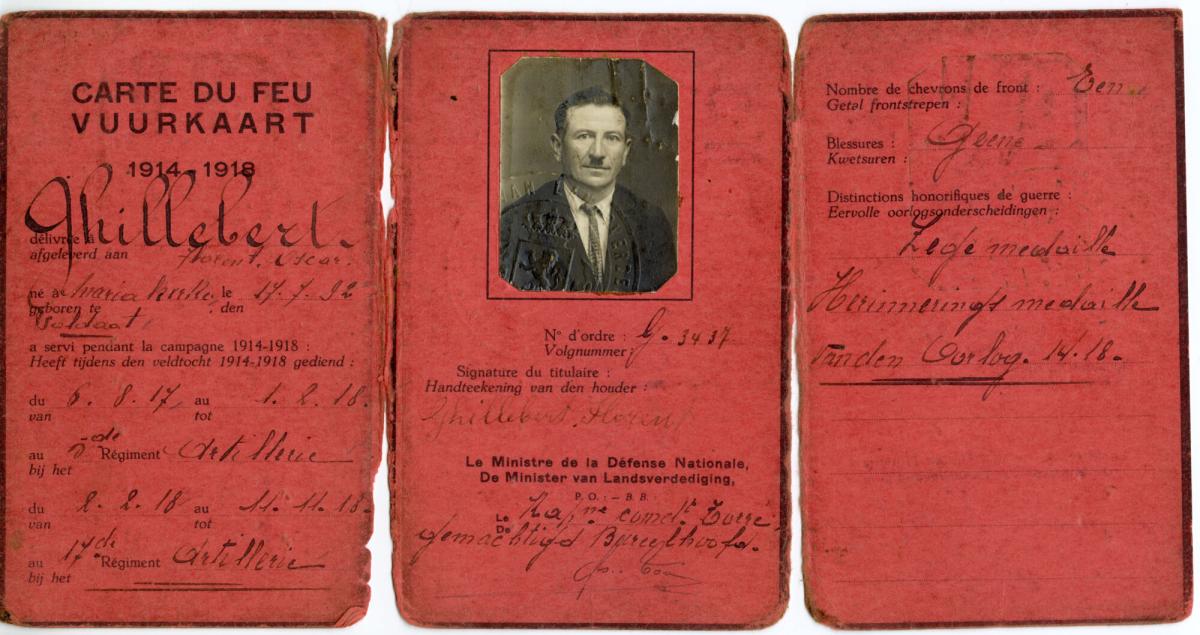 CARTE DU FEU
VUURKAART
1914-1918
Ghillebert.
délivrée à
afgeleverd aan Florent. Oscar.
né à Mariakerke, le 17.7.92
geboren te den
Soldaat,
a servi pendant la campagne 1914-1918 :
Heeft tijdens den veldtocht 1914-1918 gediend :
du 6. 8. 17, au 1. 2. 18.
van tot
au de Régiment Artillerie
bij het
du 2. 2. 18 au 11. 11. 18.
van tot
au 17de Régiment Artillerie
bij het
N° d'ordre : G. 3437
Volgnummer
Signature du titulaire :
Handteekening van den houder :
Ghillebert. Florent
Le Ministre de la Défense Nationale,
De Minister van Landsverdediging,
P. O. : - B. B.
Le Kapne comdt
De
gemachtigd Bureelhoofd.
Nombre de chevrons de front : Een
Getal frontstrepen :
Blessures : Geene
Kwetsuren :
Distinctions honorifiques de guerre :
Eervolle oorlogsonderscheidingen :
Zege medaille
Herinnerings medaille
van den Oorlog. 14-18.